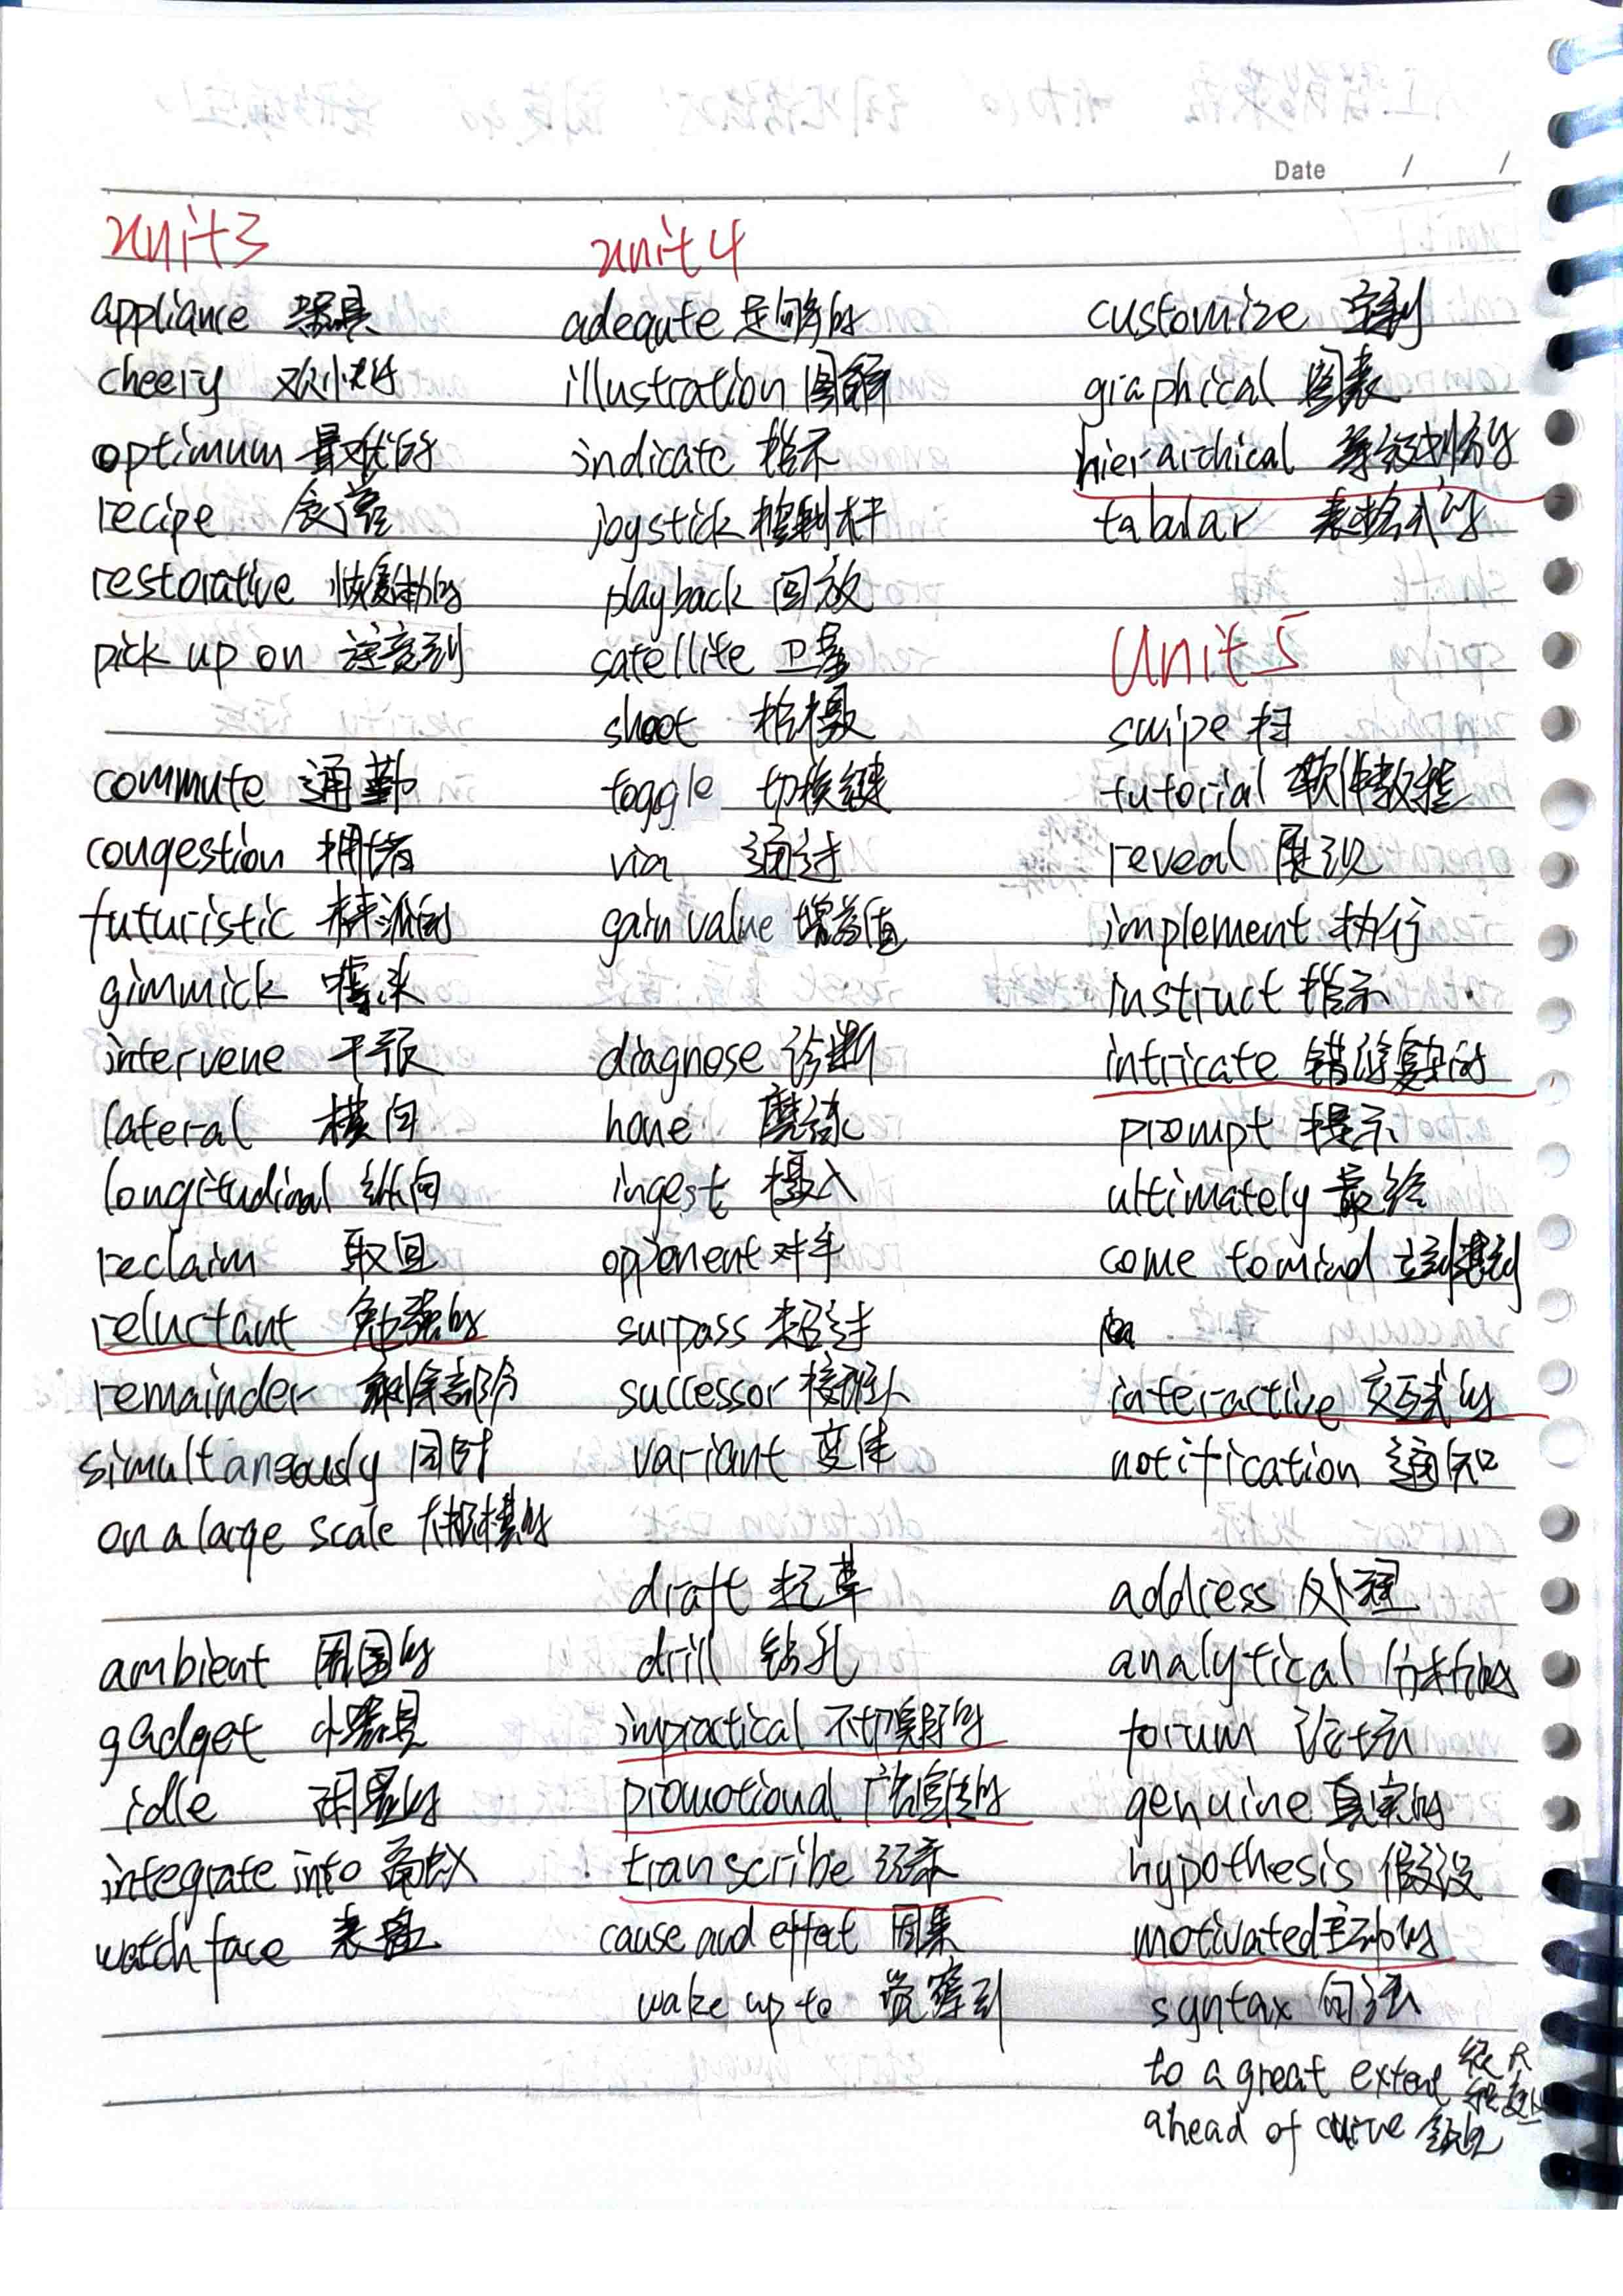 Date / /
unit3
appliance 器具
cheery 欢快的
optimum 最优的
recipe 食谱
restorative 恢复
pick up on 注意到
commute 通勤
congestion 拥堵
futuristic
gimmick 噱头
intervene 干预
lateral 横向
longitudinal 纵向
reclaim 取回
reluctant 勉强的
remainder 剩余部分
simultaneously 同时
on a large scale 大规模的
ambient 周围的
gadget 小器具
idle 闲置的
integrate into 融入
watch face 表盘
unit 4
adequte 足够的
illustration 图解
indicate 指示
joystick 控制杆
playback 回放
satellite 卫星
shoot 拍摄
toggle 切换键
via 通过
gain value 增益值
diagnose 诊断
hone 磨练
ingest 摄入
opponent 对手
surpass 超过
successor 接班人
variant 变体
draft 起草
drill 钻孔
impractical 不切实际的
promotional 广告宣传的
transcribe 记录
cause and effect 因果
wake up to 觉察到
customize 定制
graphical 图表
hierarchical 等级划分的
tabular 表格式的
Unit 5
swipe 扫
tutorial 软件教程
reveal 展现
implement 执行
instruct 指示
intricate 错综复杂的
prompt 提示
ultimately 最终
come to mind 立刻想到
interactive 交互式的
notification 通知
address 处理
analytical 分析的
forum 论坛
genuine 真实的
hypothesis 假设
motivated 主动的
syntax 句法
to a great extent 很大程度上
ahead of curve 领先